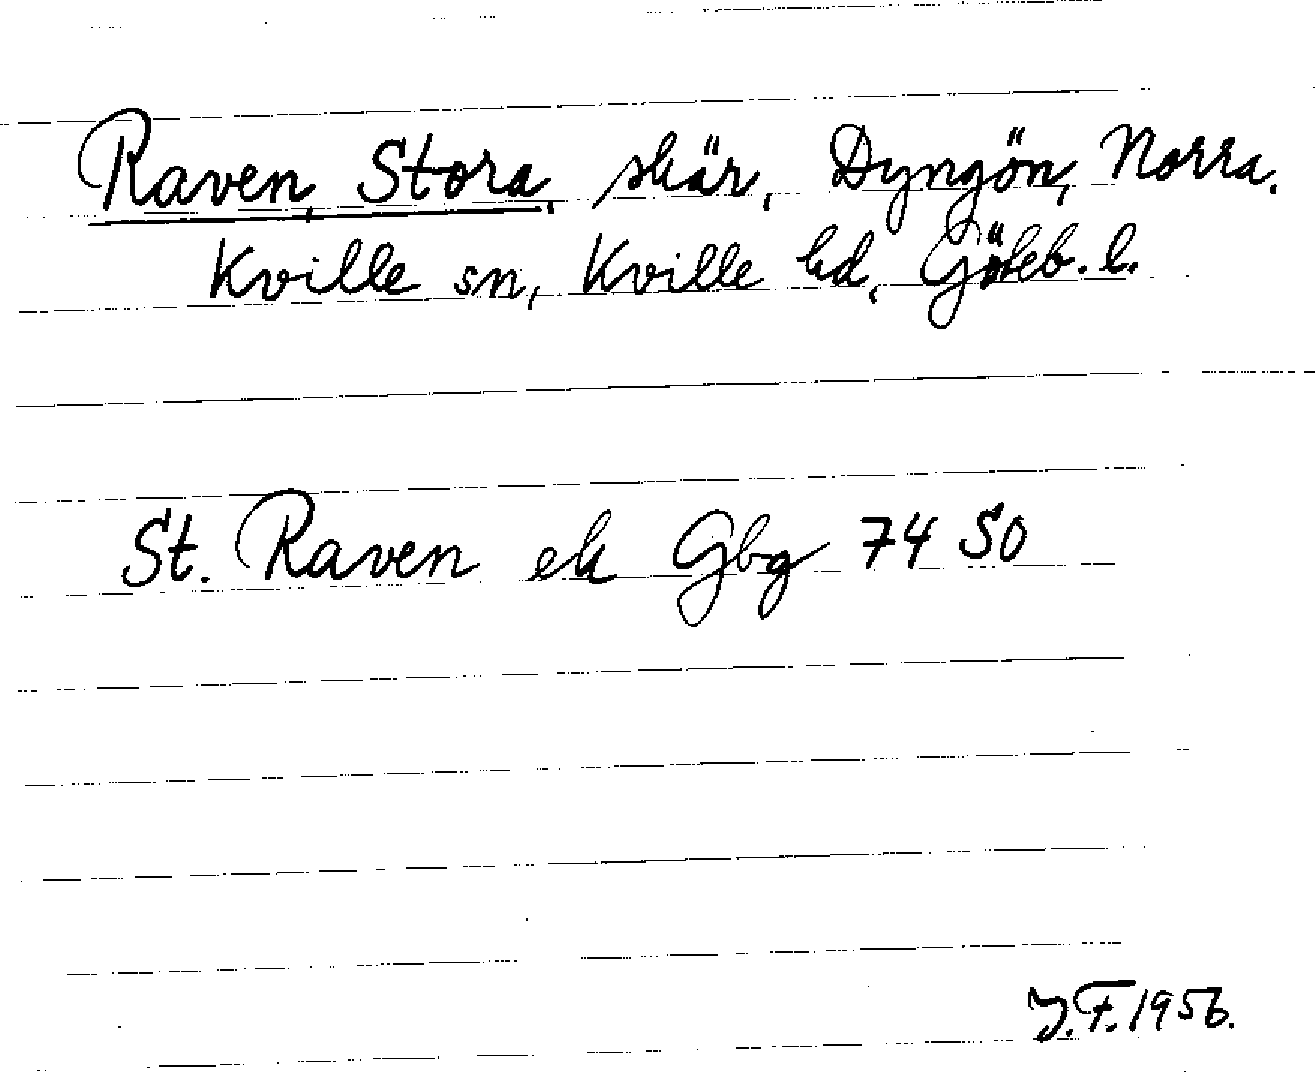 Raven, Stora, skär, Dyngön, Norra.
Kville sn, Kville hd, Göteb. l.
St. Raven ek Gbg 74 SO
J.F. 1956.